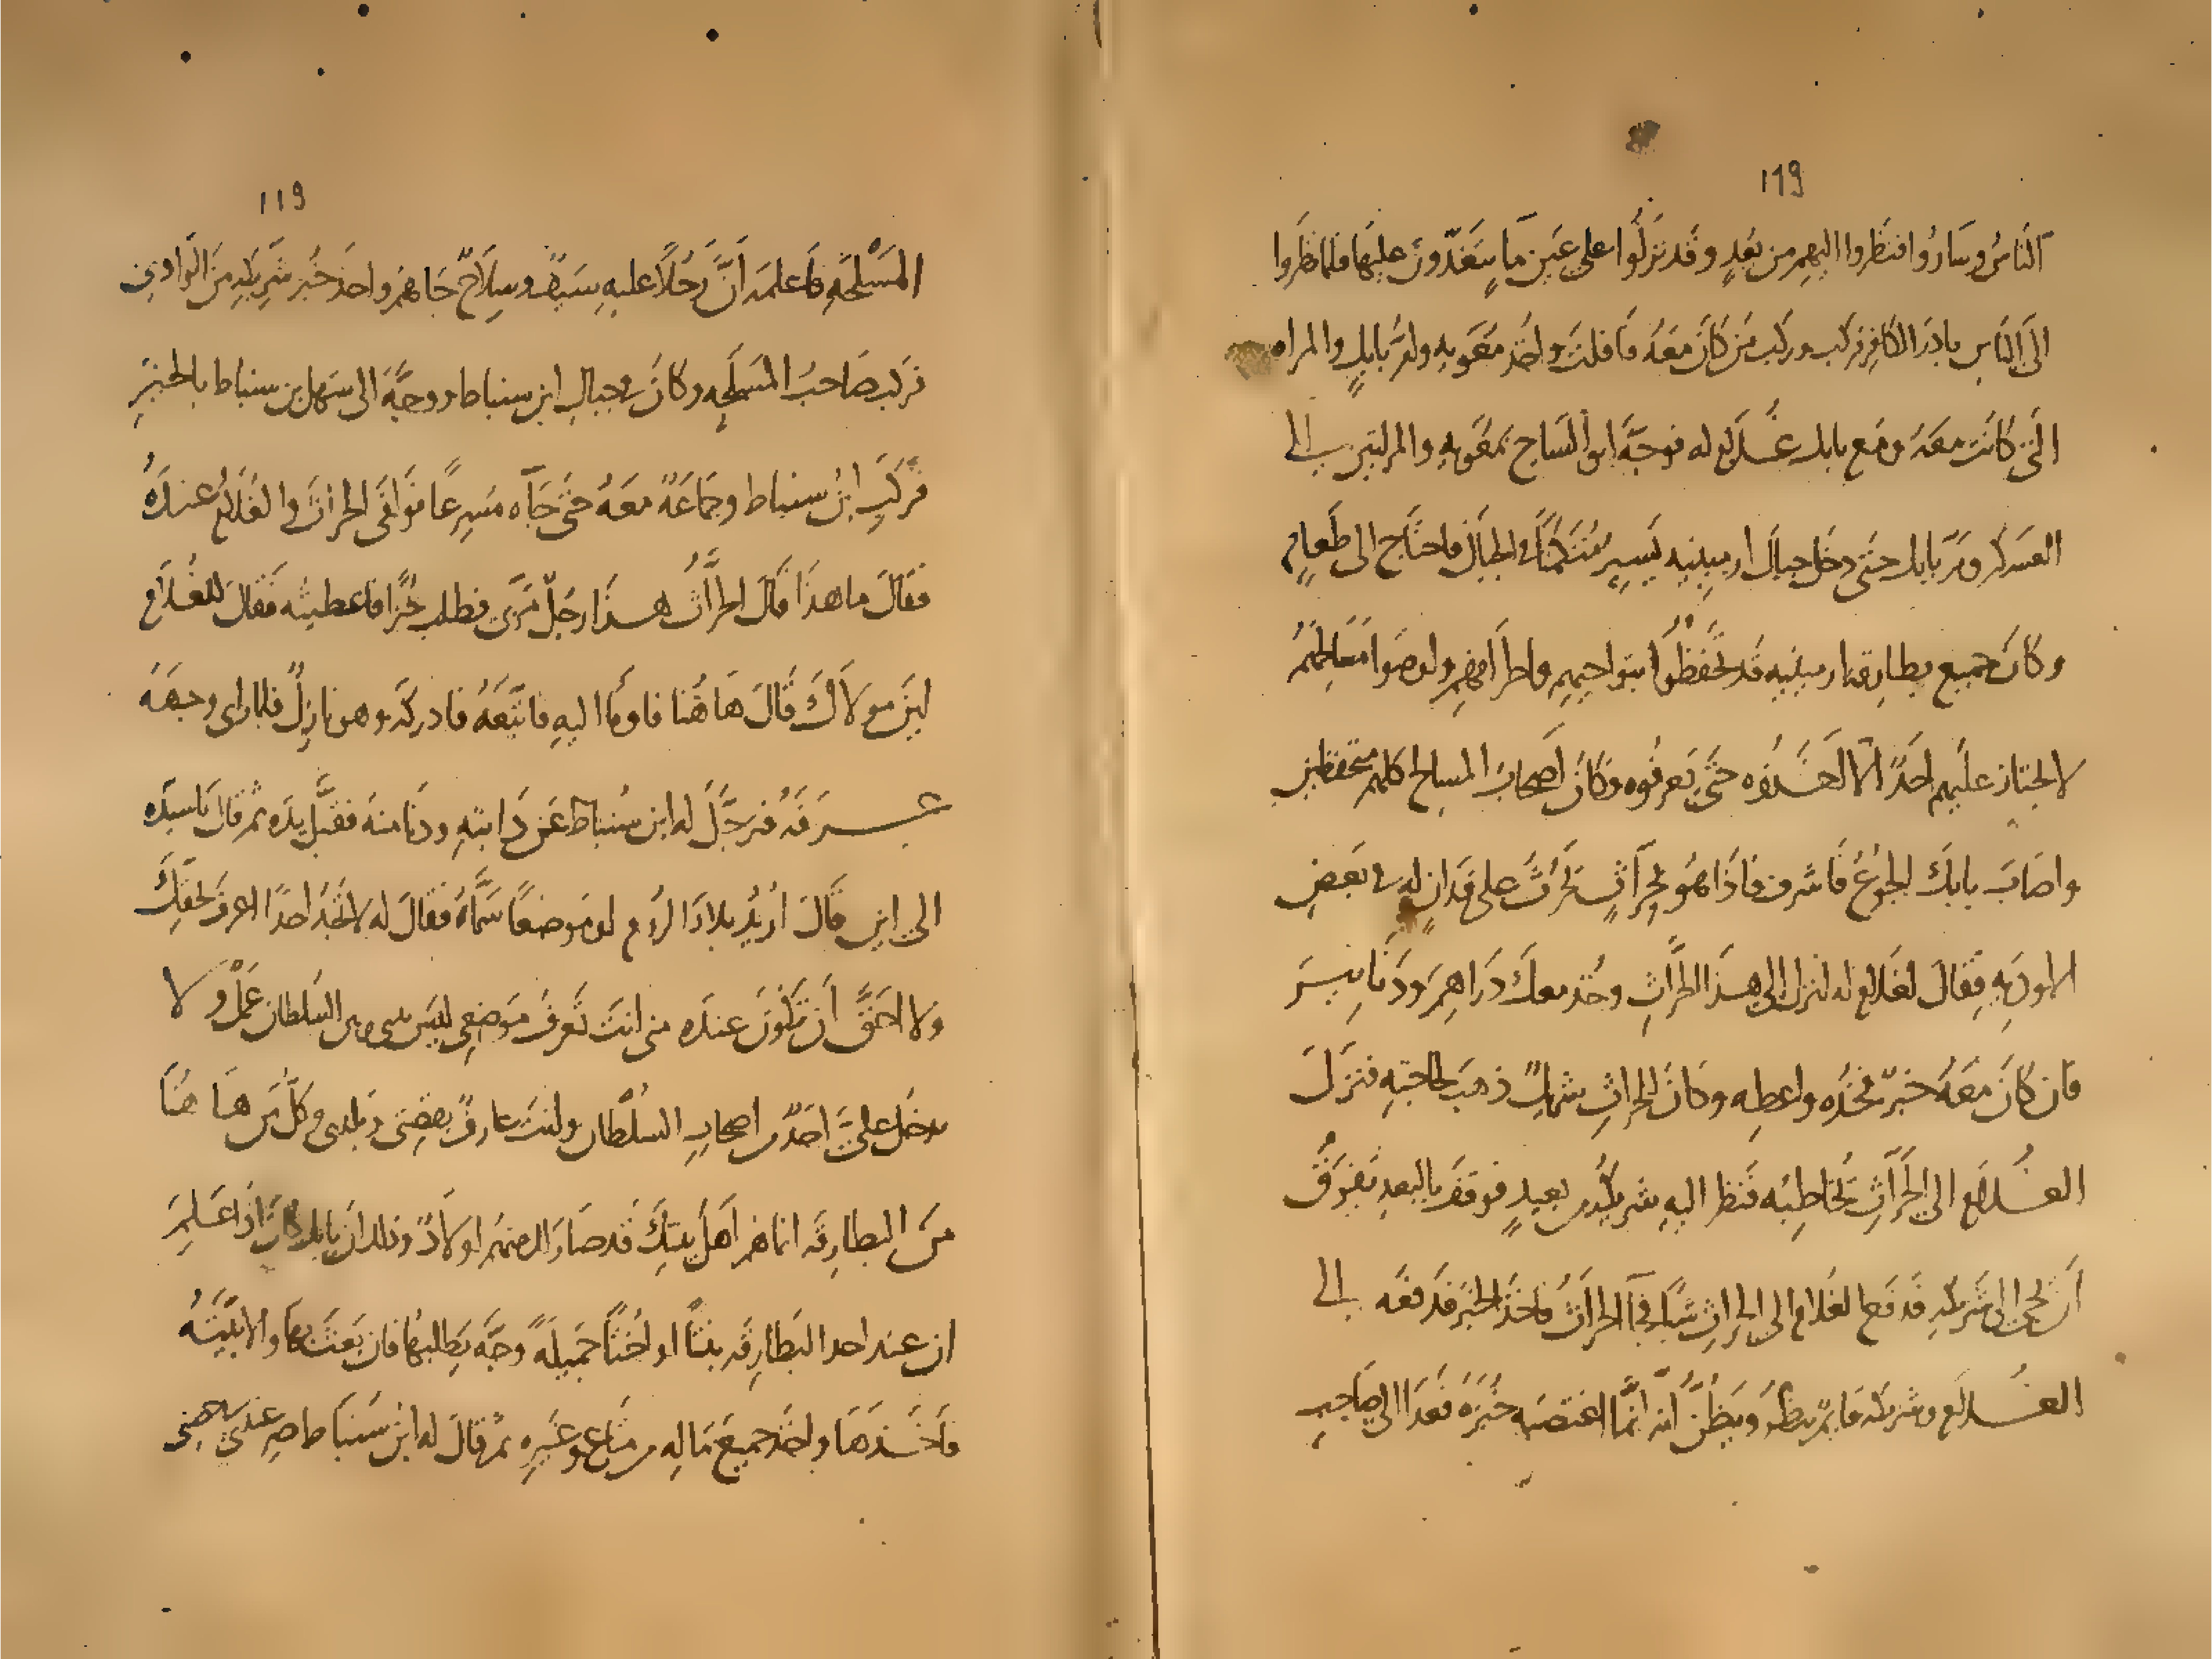 119
النَّاسُ وسَارُوا فنَظَروا اليهم من بُعدٍ وقَد نزلُوا على عَين مَا يتغَدّونَ عليهَا فلما نظَروا
الَى النَّاس بادَرَ الكافر فركب وركب مَن كَانَ معَهُ فَافلتَ واخُذ معَوية وامُّ بابكٍ والمراه
التى كانَت معَهُ ومَع بابك غُلام له فوجَّهَ ابو السَّاج بمعَويةٍ والمراتين الى
العَسكر ومَرّ بابك حتى دخل جبال ارمينيه يَسيرُ مُتَكمّنًا في الجبال فاحتَاج الى طَعامٍ
وكانَ جميع بطارقه ارمينيه قد تحَفَّظُوا بنواحيهم واطرافهم واوصَوا مسَالحَهُم
لا يجتاز عليهم احَدٌ الا اخَذُوه حتى يَعرفُوه وكَانَ اصحابُ المسالح كلهم متحفظين
واصَابَ بابكَ الجوعُ فَاشرف فاذَا هُو بحراثٍ يَحرُثُ على فدَانٍ له في بَعضِ
الاوديهِ فقَالَ لغلامٍ له انزل الى هذا الحرَّاثِ وخُذ معكَ دَراهِمَ ودنَانيرَ
فان كانَ معَهُ خبزٌ فخُذه واعطِه وكانَ للحراثِ شريكٌ ذهبَ لحاجتِه فنَزلَ
الغُلامُ الى الحَرَّاثِ يخَاطِبُه فنَظر اليهِ شريكُه من بعيدٍ فوقفَ بالبعدِ يَفرَقُ
اَن يجىَ الى شريكهِ فدَفعَ الغُلام الى الحراثِ شيًا فجآ الحرَاثُ فاخَذَ الخبزَ فدَفعَه الى
الغُلام وشريكه قايم ينظُر ويَظُنُّ انه انَّما اغتصَبه خُبزَهُ فعَدَا الى صَاحبِ
119
المَسْلحَةِ فاعلمَه اَنَّ رجُلاً عليهِ سَيفٌ وسِلاحٌ جَاهُم واخذَ خُبز شَريكه منَ الوادي
فركب صَاحبُ المسَلحهِ وكانَ في جبالِ ابن سنباط ووجَّهَ الى سَهل بن سنباط بالخبَرِ
فركبَ ابنُ سنباط وجمَاعَةٌ معَهُ حتى جَآه مُسرعًا فوَافى الحراثَ والغُلامُ عندَهُ
فقالَ ما هذا قالَ الحرّاثُ هذا رجُلٌ مَرّ بى فطلب خُبزًا فاعطيتُه فقالَ للغُلامِ
اينَ مولاكَ قالَ هَاهُنا فاومَا اليهِ فاتّبعَهُ فادركه وهو نازِلٌ فلما راى وجههَ
عرفَهُ فترجَّلَ له ابن سُنباط عَن دَابتهِ ودنَا منهُ فقبَّل يدَه ثم قالَ يَا سيّده
الى اين قالَ اُريدُ بلادَ الروم او مَوضعًا سَمَّاهُ فقالَ له لا تجدُ احدًا اعرف بحقكَ
ولا احَقَّ اَن تكُونَ عندَه منى انتَ تَعرفُ مَوضِعى ليسَ بينى وبين السُلطانِ عمَلٌ ولا
يدخُل علىَّ احَدٌ من اصحابِ السُلطان وانتَ عارفٌ بقضيتى وبلدى وكلُّ من هَا هُنَا
منَ البطارقَه انما هُم اهل بيتكَ قد صَارَ لك منهُم اولادٌ وذلك ان بابك كانَ اذَا عَلمَ
ان عند احد البطارقَه بنتًا او اختًا جميلةً وجَّه يَطلبُهَا فان بعَثَ بها والا بَيَّتَهُ
فاخَذَهَا واخذ جميعَ مَا له من متَاعٍ وغَيرِه ثم قالَ له ابنُ سنباط صِر عندى في حصنى